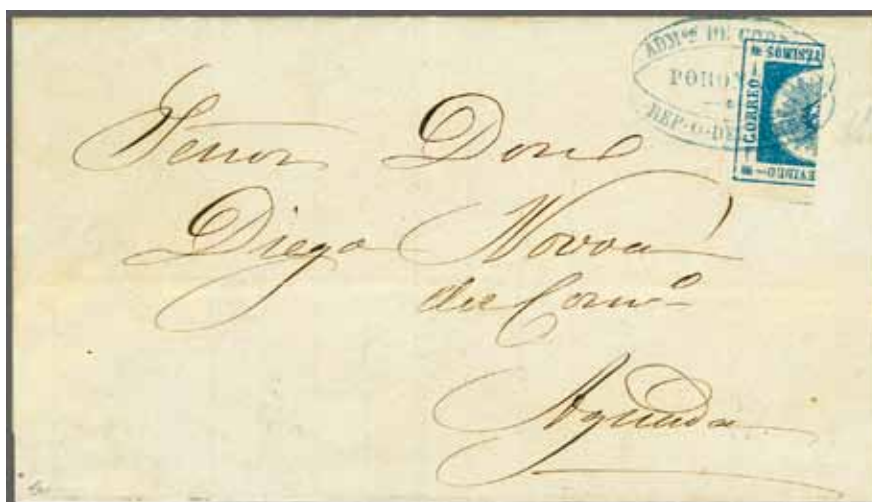 ADMON DE COR
PORON
REP. O. DE
TESIMOS
CORREO
EVIDEO
Señor Don
Diego Novoa
del Como
Aguada